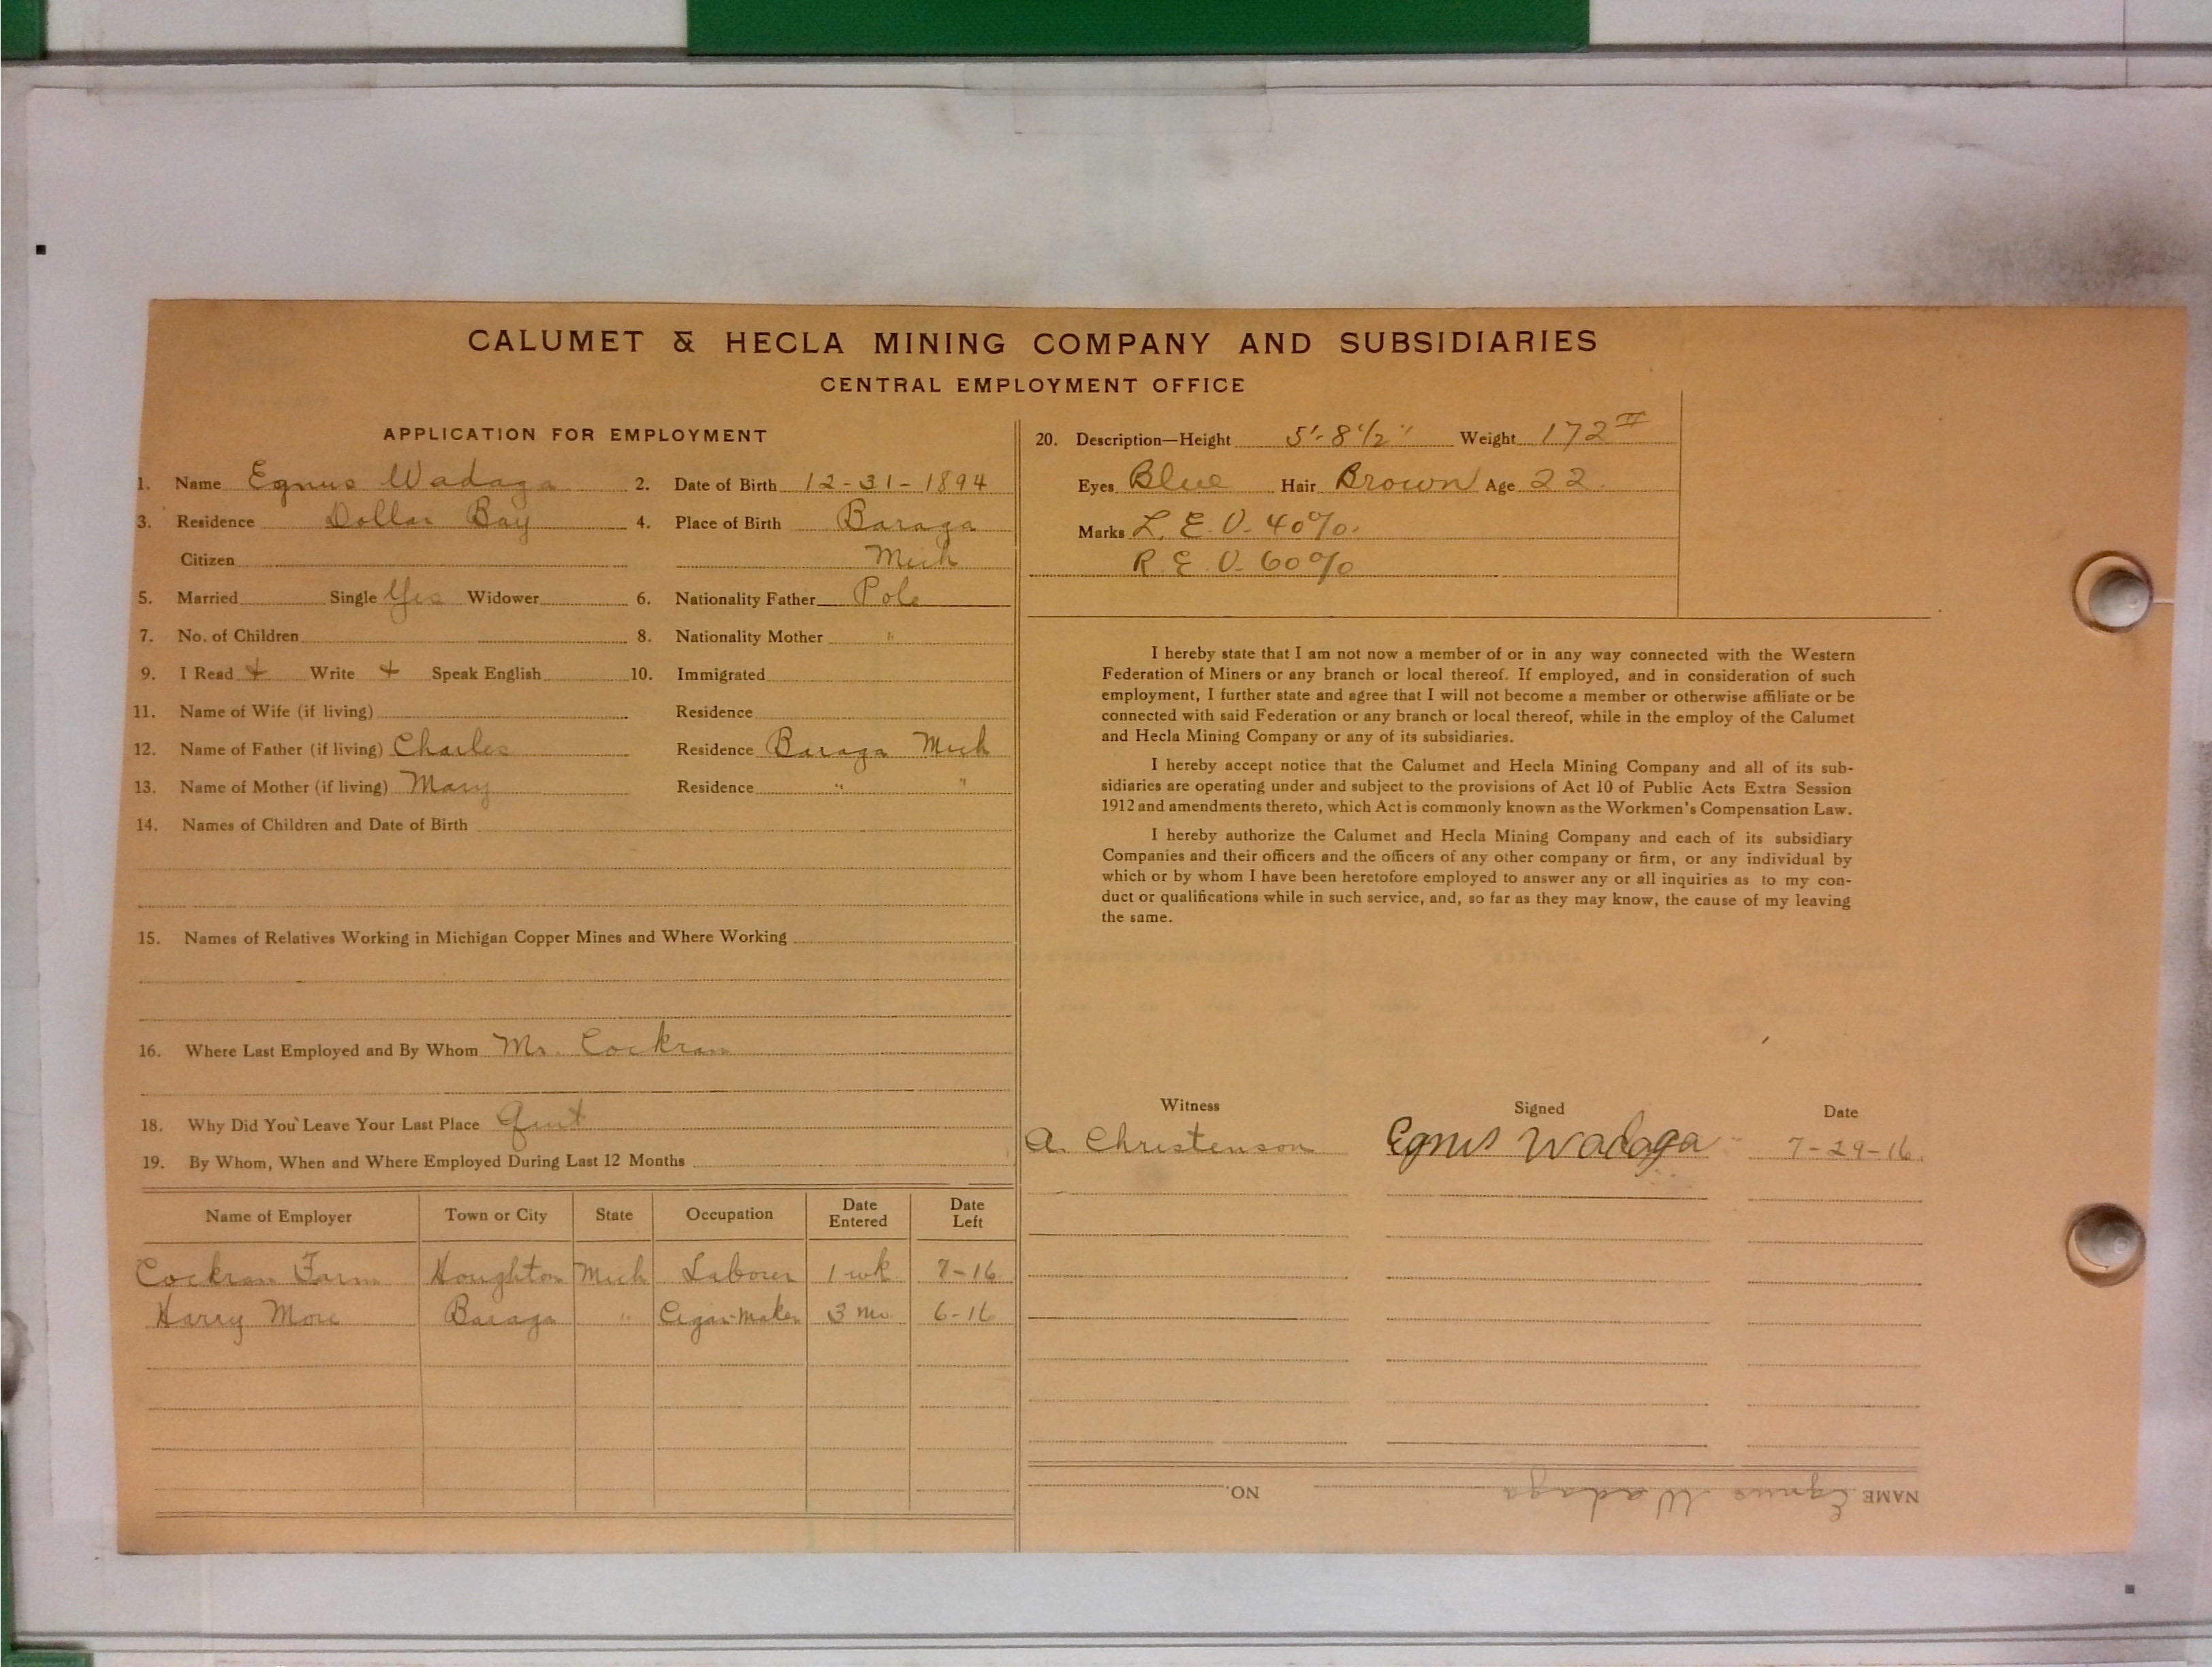 CALUMET & HECLA MINING COMPANY AND SUBSIDIARIES
CENTRAL EMPLOYMENT OFFICE
APPLICATION FOR EMPLOYMENT
1. Name Egnus Wadaga 2. Date of Birth 12-31-1894
3. Residence Dollar Bay 4. Place of Birth Baraga
Citizen Mich
5. Married Single Yes Widower 6. Nationality Father Pole
7. No. of Children 8. Nationality Mother "
9. I Read + Write + Speak English 10. Immigrated
11. Name of Wife (if living) Residence
12. Name of Father (if living) Charles Residence Baraga Mich
13. Name of Mother (if living) Mary Residence " "
14. Names of Children and Date of Birth
15. Names of Relatives Working in Michigan Copper Mines and Where Working
16. Where Last Employed and By Whom Mr. Cockran
18. Why Did You Leave Your Last Place Quit
19. By Whom, When and Where Employed During Last 12 Months
Name of Employer Town or City State Occupation Date Entered Date Left
Cockran Farm Houghton Mich Laborer 1 wk 7-16
Harry More Baraga " Cigar-Maker 3 mo 6-16
20. Description—Height 5'-8 1/2" Weight 172 #
Eyes Blue Hair Brown Age 22.
Marks L. E. V- 40%.
R. E. V- 60%
I hereby state that I am not now a member of or in any way connected with the Western
Federation of Miners or any branch or local thereof. If employed, and in consideration of such
employment, I further state and agree that I will not become a member or otherwise affiliate or be
connected with said Federation or any branch or local thereof, while in the employ of the Calumet
and Hecla Mining Company or any of its subsidiaries.
I hereby accept notice that the Calumet and Hecla Mining Company and all of its sub-
sidiaries are operating under and subject to the provisions of Act 10 of Public Acts Extra Session
1912 and amendments thereto, which Act is commonly known as the Workmen's Compensation Law.
I hereby authorize the Calumet and Hecla Mining Company and each of its subsidiary
Companies and their officers and the officers of any other company or firm, or any individual by
which or by whom I have been heretofore employed to answer any or all inquiries as to my con-
duct or qualifications while in such service, and, so far as they may know, the cause of my leaving
the same.
Witness Signed Date
A. Christenson Egnus Wadaga 7-29-16
NAME Egnus Wadaga NO.